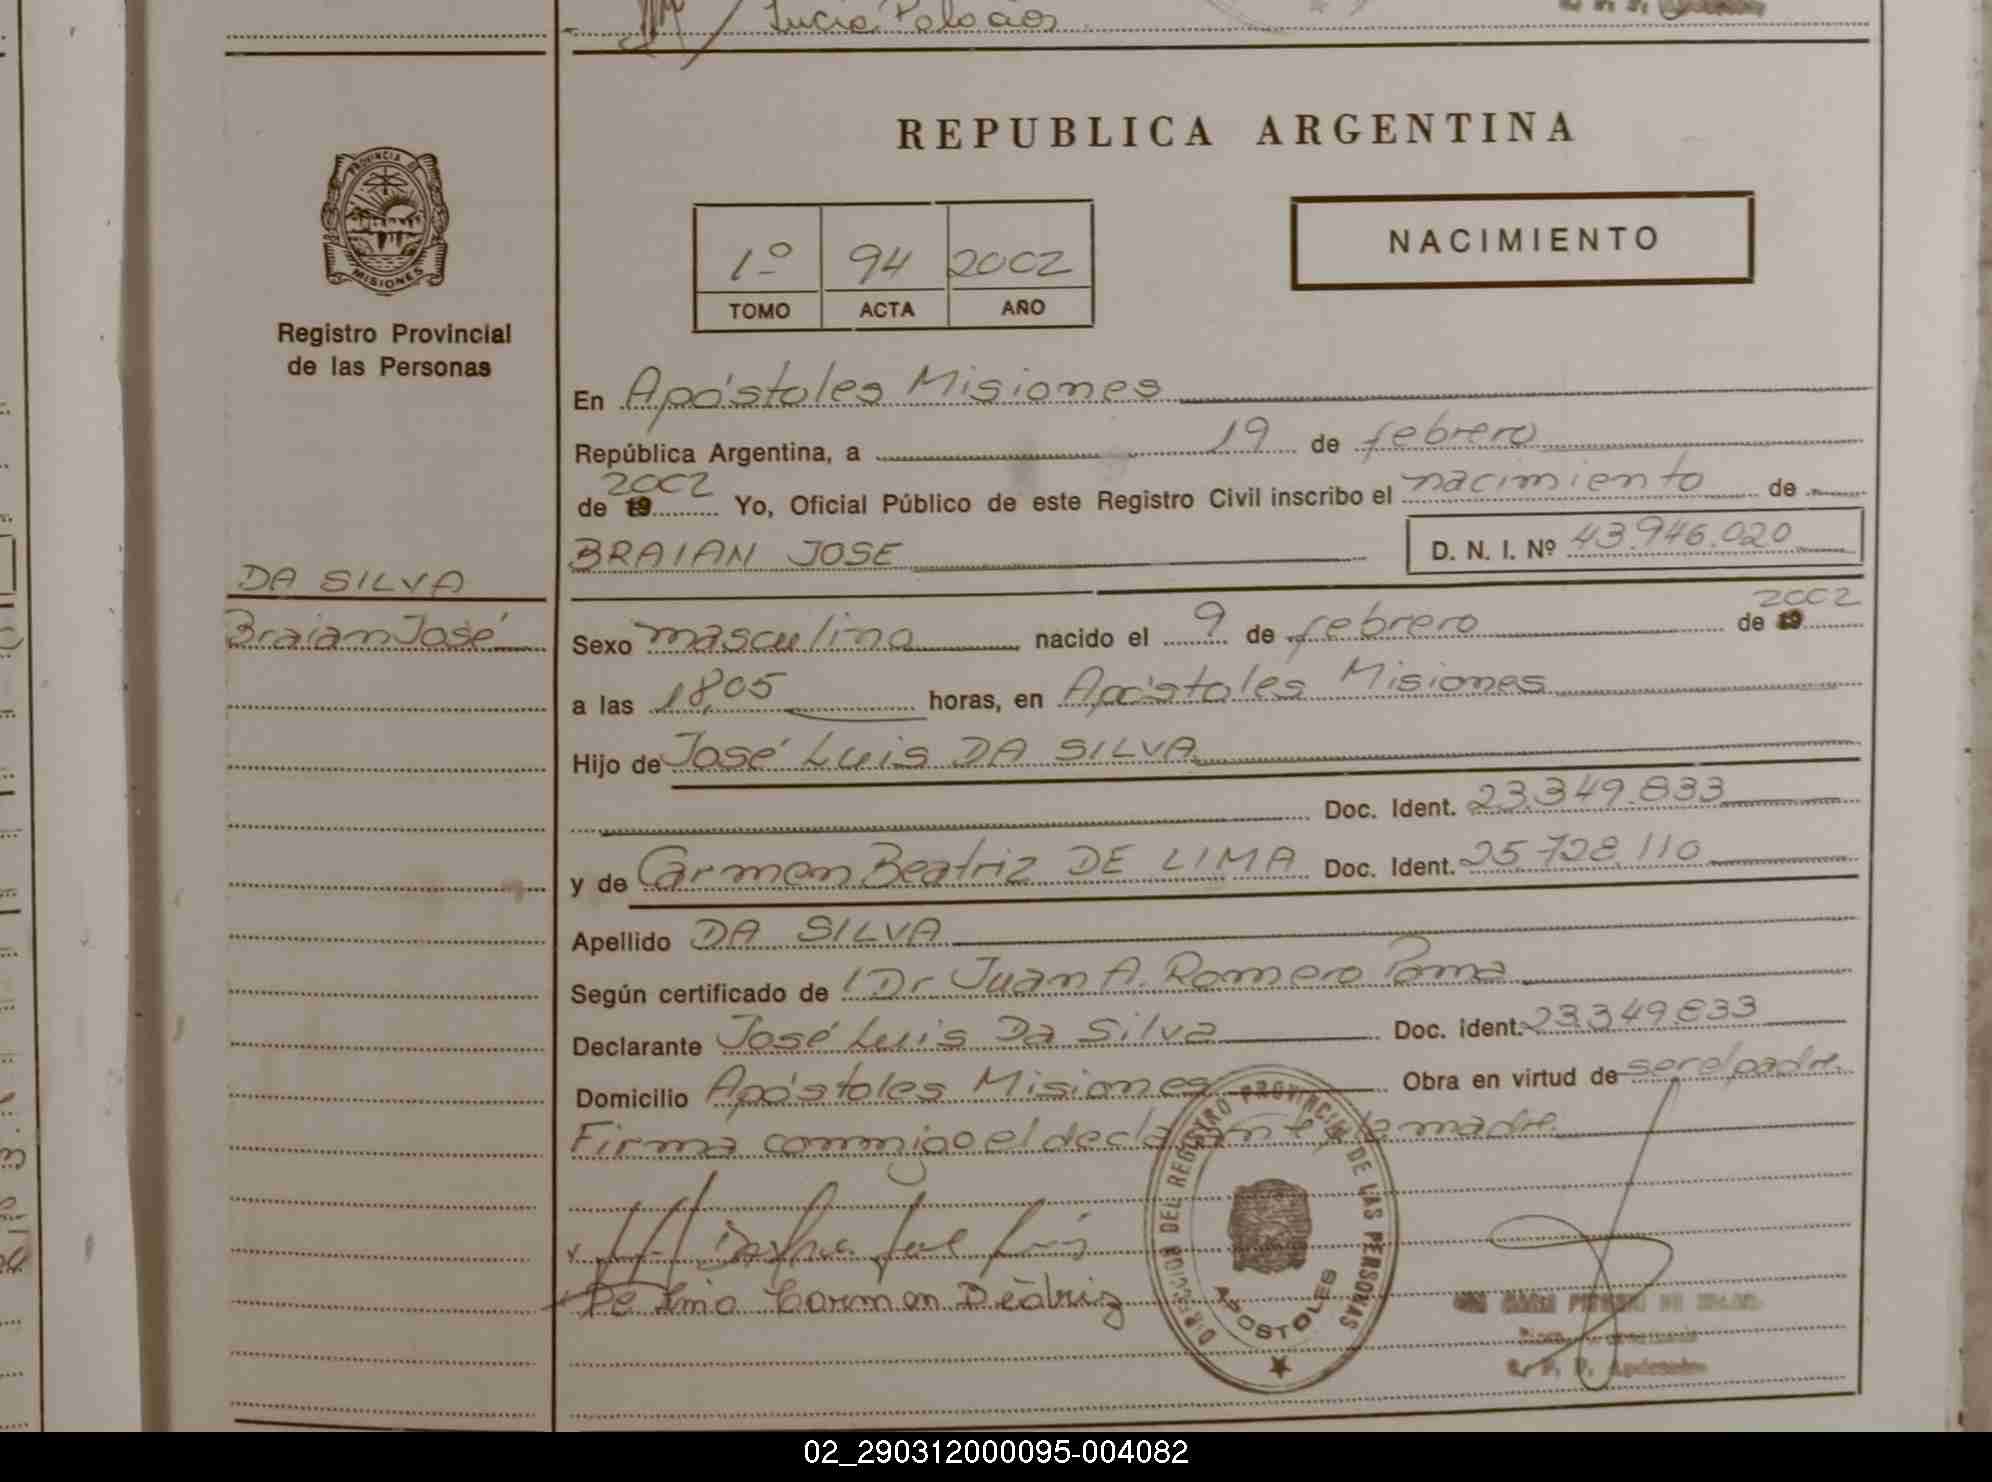 Lucia Palacios
REPUBLICA ARGENTINA
PROVINCIA DE
MISIONES
Registro Provincial
de las Personas
1º 94 2002
TOMO ACTA AÑO
NACIMIENTO
En Apóstoles Misiones
República Argentina, a 19 de febrero
de 19 2002 Yo, Oficial Público de este Registro Civil inscribo el nacimiento de
BRAIAN JOSE D. N. I. Nº 43.946.020
DA SILVA
Braian José
Sexo masculino nacido el 9 de febrero de 19 2002
a las 18,05 horas, en Apóstoles Misiones
Hijo de José Luis DA SILVA
Doc. Ident. 23.349.833
y de Carmen Beatriz DE LIMA Doc. Ident. 25.728.110
Apellido DA SILVA
Según certificado de Dr Juan A. Romero Poma
Declarante José Luis Da Silva Doc. ident. 23.349.833
Domicilio Apóstoles Misiones Obra en virtud de ser el padre.
Firma conmigo el declarante y la madre.
Da Silva José Luis
De Lima Carmen Beatriz
DIRECCION DEL REGISTRO PROVINCIAL DE LAS PERSONAS
APOSTOLES
02_290312000095-004082